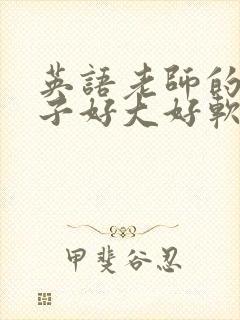 英語老師的
子好大好軟
甲斐谷忍